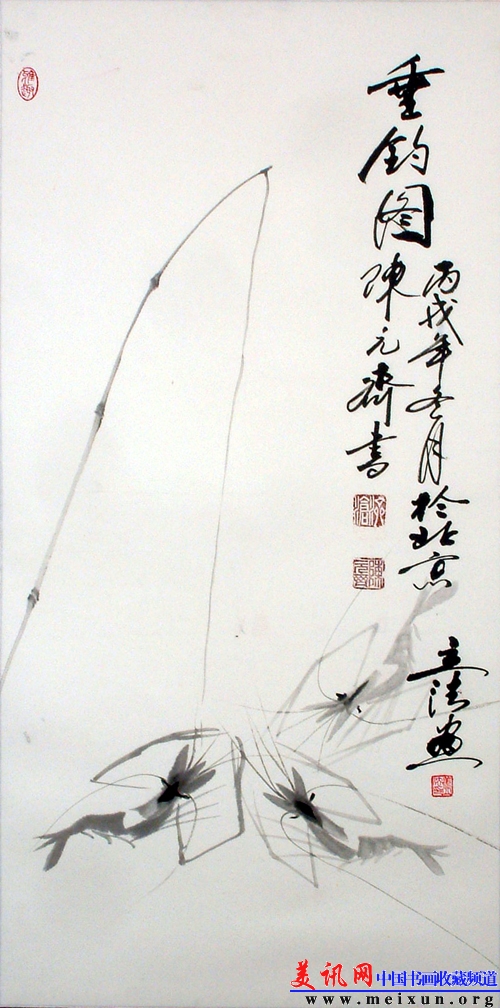 垂钓图
陳元齋書
丙戌年冬月於北京
美讯网 中国书画收藏频道
www.meixun.org